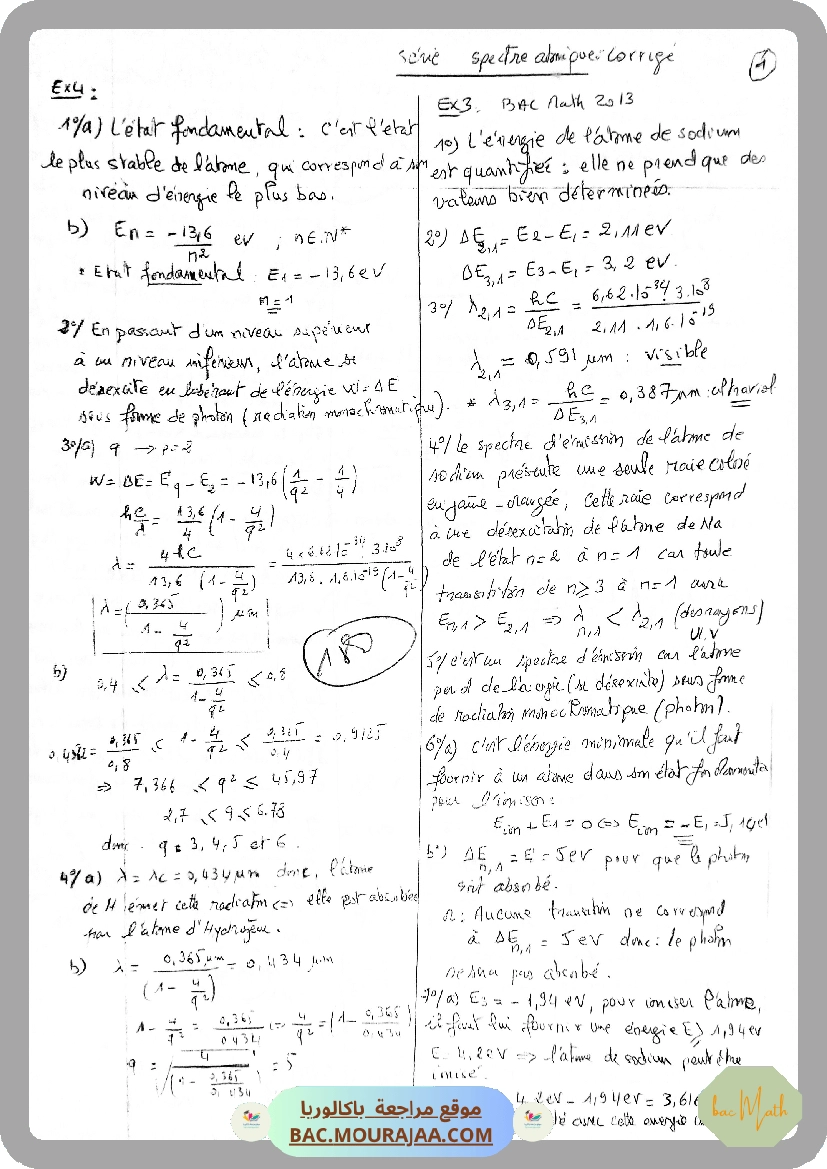 Série spectre atomique: corrigé
1
Ex4:
1°/a) L'état fondamental : C'est l'état
le plus stable de l'atome, qui correspond à son
niveau d'énergie le plus bas.
b) En = -13,6/n² eV ; n∈N*
* Etat fondamental : E1 = -13,6 eV
n=1
2°/ En passant d'un niveau supérieur
à un niveau inférieur, l'atome se
désexcite en libérant de l'énergie W=ΔE
sous forme de photon (radiation monochromatique).
3°/a) q → p=2
W = ΔE = Eq - E2 = -13,6 (1/q² - 1/4)
hc/λ = 13,6/4 (1 - 4/q²)
λ = 4hc / 13,6 (1 - 4/q²) = 4 . 6,62 10⁻³⁴ . 3.10⁸ / 13,6 . 1,6.10⁻¹⁹ (1 - 4/q²)
λ = (0,365 / 1 - 4/q²) μm
180
b) 0,4 ≤ λ = 0,365 / 1 - 4/q² ≤ 0,8
0,4562 = 0,365/0,8 ≤ 1 - 4/q² ≤ 0,365/0,4 = 0,9125
⇒ 7,366 ≤ q² ≤ 45,97
2,7 ≤ q ≤ 6.78
donc q = 3, 4, 5 et 6.
4°/a) λ = λc = 0,434 μm donc, l'atome
de H émet cette radiation ⇔ elle est absorbée
par l'atome d'Hydrogène.
b) λ = 0,365 μm / (1 - 4/q²) = 0,434 μm
1 - 4/q² = 0,365/0,434 ⇒ 4/q² = (1 - 0,365/0,434)
q = √(4 / (1 - 0,365/0,434)) = 5
Ex3. BAC Math 2013
1°) L'énergie de l'atome de sodium
est quantifiée : elle ne prend que des
valeurs bien déterminées.
2°) ΔE2,1 = E2 - E1 = 2,11 eV
ΔE3,1 = E3 - E1 = 3,2 eV.
3°/ λ2,1 = hc/ΔE2,1 = 6,62.10⁻³⁴.3.10⁸ / 2,11 . 1,6.10⁻¹⁹
λ2,1 = 0,591 μm : visible
* λ3,1 = hc/ΔE3,1 = 0,387 μm : ultraviol
4°/ Le spectre d'émission de l'atome de
sodium présente une seule raie coloré
en jaune-orangée, cette raie correspond
à une désexcitation de l'atome de Na
de l'état n=2 à n=1 car toute
transition de n≥3 à n=1 aura
En,1 > E2,1 ⇒ λn,1 < λ2,1 (des rayons)
U.V
5°/ c'est un spectre d'émission car l'atome
perd de l'énergie (se désexcite) sous forme
de radiation monochromatique (photon).
6°/a) C'est l'énergie minimale qu'il faut
fournir à un atome dans son état fondamental
pour l'ioniser:
Eion + E1 = 0 ⇔ Eion = -E1 = 5,14 eV
b°) ΔEn,1 = E = 5eV pour que le photon
soit absorbé.
or: Aucune transition ne correspond
à ΔEn,1 = 5 eV donc: le photon
ne sera pas absorbé.
7°/a) E3 = -1,94 eV, pour ioniser l'atome,
il faut lui fournir une énergie E ≥ 1,94 eV
E = 4,2 eV ⇒ l'atome de sodium peut être
ionisé.
4,2 eV - 1,94 eV = 3,616
avec cette énergie
موقع مراجعة باكالوريا
BAC.MOURAJAA.COM
bac Math